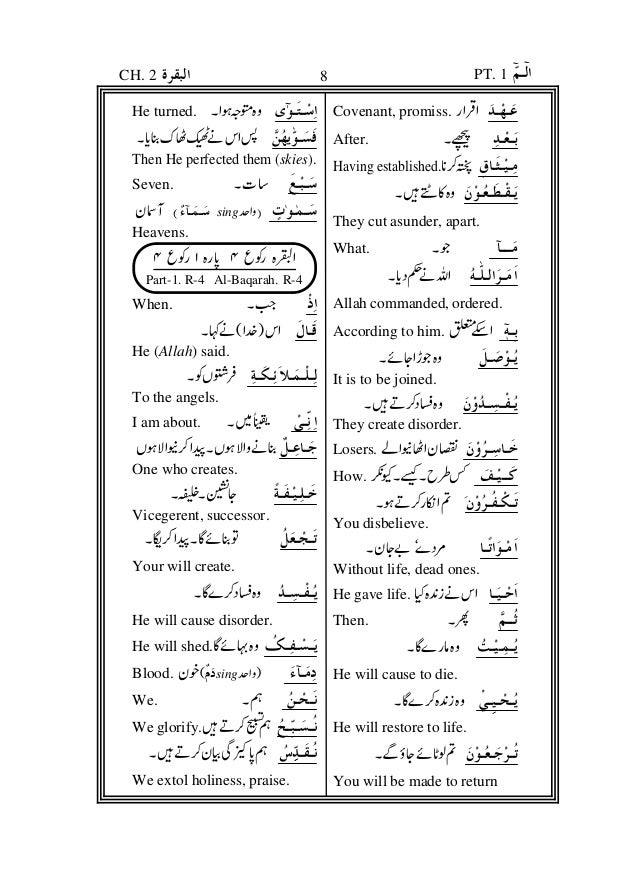 CH. 2 البقرة 8 PT. 1 الٓمّٓ
عَهْدَ اقرار Covenant, promiss.
بَعْدِ پیچھے۔ After.
مِيْثَاقِ پختہ کرنا Having established.
يَقْطَعُوْنَ وہ کاٹتے ہیں۔
They cut asunder, apart.
مَآ جو۔ What.
اَمَرَاللّٰهُ اللہ نے حکم دیا۔
Allah commanded, ordered.
بِهٖٓ اسکے متعلق According to him.
يُوْصَلَ وہ جوڑا جائے۔
It is to be joined.
يُفْسِدُوْنَ وہ فساد کرتے ہیں۔
They create disorder.
خَاسِرُوْنَ نقصان اٹھانیوالے Losers.
كَيْفَ کس طرح۔ کیسے۔ کیونکر How.
تَكْفُرُوْنَ تم انکار کرتے ہو۔
You disbelieve.
اَمْوَاتًا مردے بے جان۔
Without life, dead ones.
اَحْيَا اس نے زندہ کیا He gave life.
ثُمَّ پھر۔ Then.
يُمِيْتُ وہ مارے گا۔
He will cause to die.
يُحْيِيْ وہ زندہ کرے گا۔
He will restore to life.
تُرْجَعُوْنَ تم لوٹائے جاؤ گے۔
You will be made to return
اِسْتَوٰٓى وہ متوجہ ہوا۔ He turned.
فَسَوّٰىهُنَّ پس اس نے ٹھیک ٹھاک بنایا۔
Then He perfected them (skies).
سَبْعَ سات۔ Seven.
سَمٰوٰتٍ (واحد sing سَمَآءٌ) آسمان
Heavens.
البقرہ رکوع ۴ پارہ ۱ رکوع ۴
Part-1. R-4 Al-Baqarah. R-4
اِذْ جب۔ When.
قَالَ اس (خدا) نے کہا۔
He (Allah) said.
لِلْمَلَائِكَةِ فرشتوں کو۔
To the angels.
اِنِّيْ یقیناً میں۔ I am about.
جَاعِلٌ بنانے والا ہوں۔ پیدا کرنیوالا ہوں
One who creates.
خَلِيْفَةً جانشین۔ خلیفہ۔
Vicegerent, successor.
تَجْعَلُ تو بنائے گا۔ پیدا کریگا۔
Your will create.
يُفْسِدُ وہ فساد کرے گا۔
He will cause disorder.
يَسْفِكُ وہ بہائے گا۔ He will shed.
دِمَآءَ (واحد sing دَمٌ) خون Blood.
نَحْنُ ہم۔ We.
نُسَبِّحُ ہم تسبیح کرتے ہیں We glorify.
نُقَدِّسُ ہم پاکیزگی بیان کرتے ہیں۔
We extol holiness, praise.